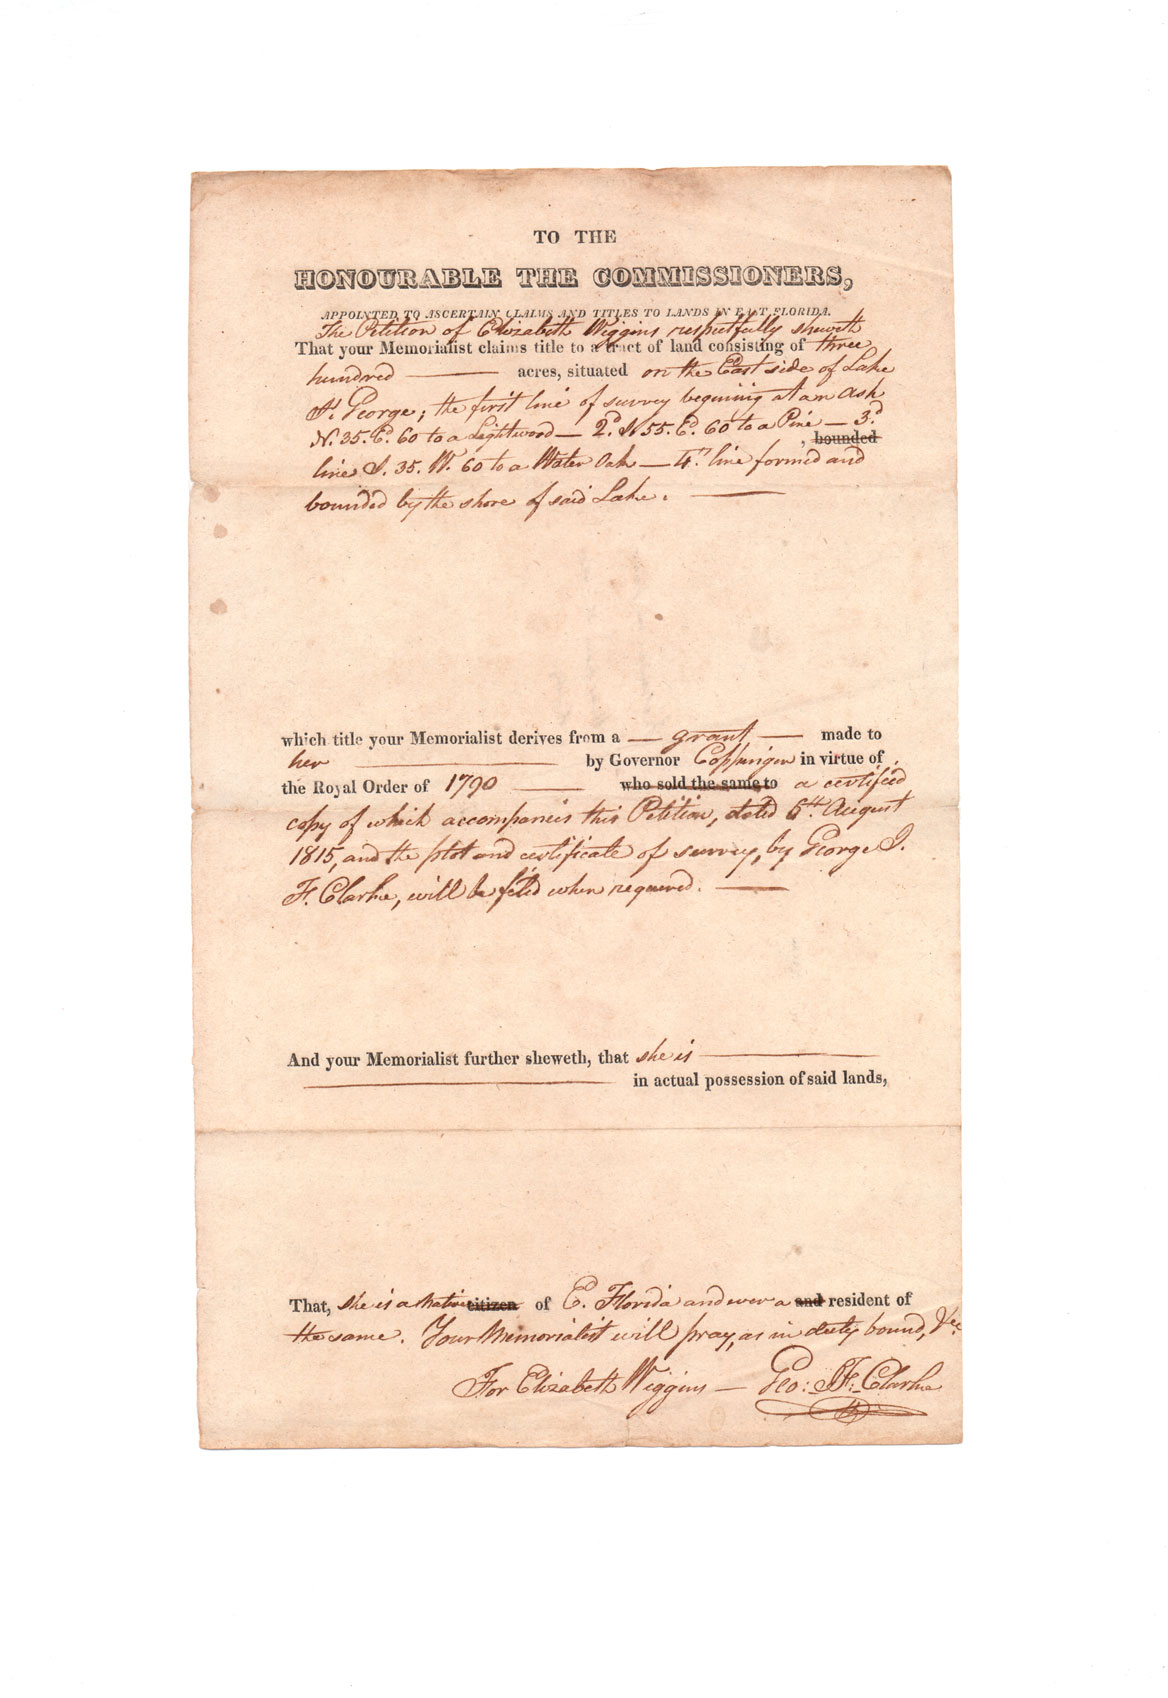 TO THE
HONOURABLE THE COMMISSIONERS,
APPOINTED TO ASCERTAIN CLAIMS AND TITLES TO LANDS IN EAST FLORIDA.
The Petition of Elizabeth Wiggins respectfully sheweth
That your Memorialist claims title to a tract of land consisting of three
hundred acres, situated on the East side of Lake
St. George; the first line of survey begining at an Ash
N. 35. Ed. 60 to a Lightwood — 2d. S. 55. Ed. 60 to a Pine — 3d.
, bounded
line S. 35. W. 60 to a Water Oak — 4th. line formed and
bounded by the shore of said Lake. —
which title your Memorialist derives from a — grant — made to
her — by Governor Coppinger in virtue of
the Royal Order of 1790 — who sold the same to a certified
copy of which accompanies this Petition, dated 5th. August
1815, and the plot and certificate of survey, by George J.
F. Clarke, will be filed when required. —
And your Memorialist further sheweth, that she is —
— in actual possession of said lands,
That, she is a Native citizen of E. Florida and ever a and resident of
the same. Your Memorialist will pray, as in duty bound, &c.
For Elizabeth Wiggins — Geo: J. F: Clarke